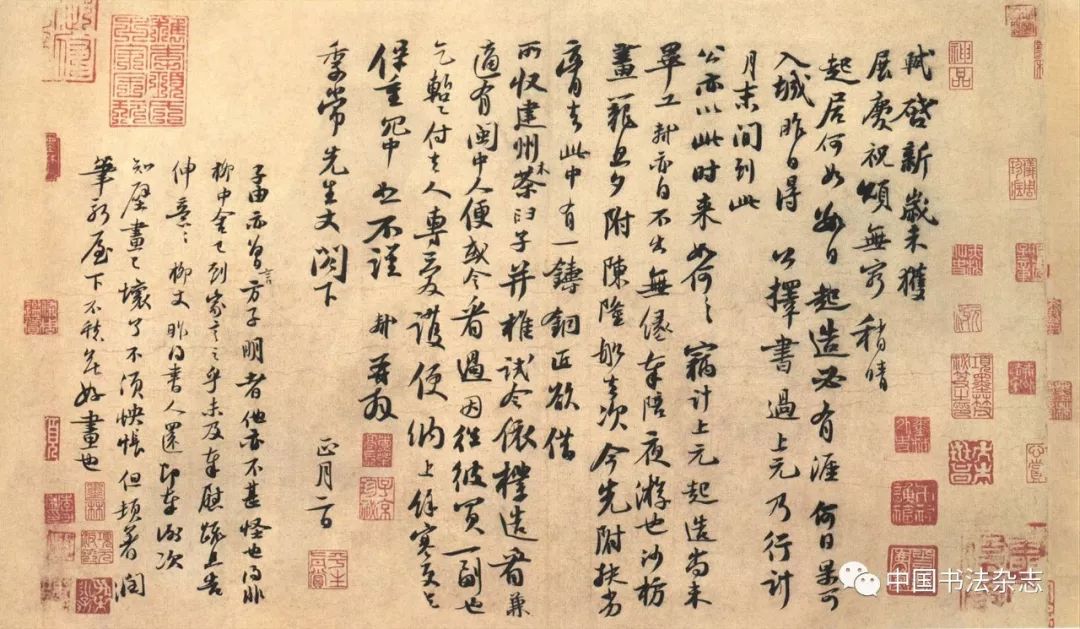 軾啓新歲未獲
展慶祝頌無窮稍晴
起居何如數日起造必有涯何日果可
入城昨日得公擇書過上元乃行計
月末間到此
公亦以此时来如何〻竊计上元起造尚未
畢工軾亦自不出無緣奉陪夜游也沙枋
畫籠旦夕附陳隆船去次今先附扶劣
膏去此中有一鑄銅匠欲借
所收建州木茶臼子并椎試令依樣造看兼
適有閩中人便或令看過因往彼買一副也
乞暫付去人專愛護便納上餘寒更乞
保重冗中恕不謹軾再拜
季常先生丈閣下
正月二日
子由亦曾言方子明者他亦不甚怪也得非
柳中舍已到家言之乎未及奉慰疏且告
伸意〻柳丈昨得書人還即奉謝次
知壁畫已壞了不須怏悵但頓著潤
筆新屋下不愁無好畫也
神品
中国书法杂志